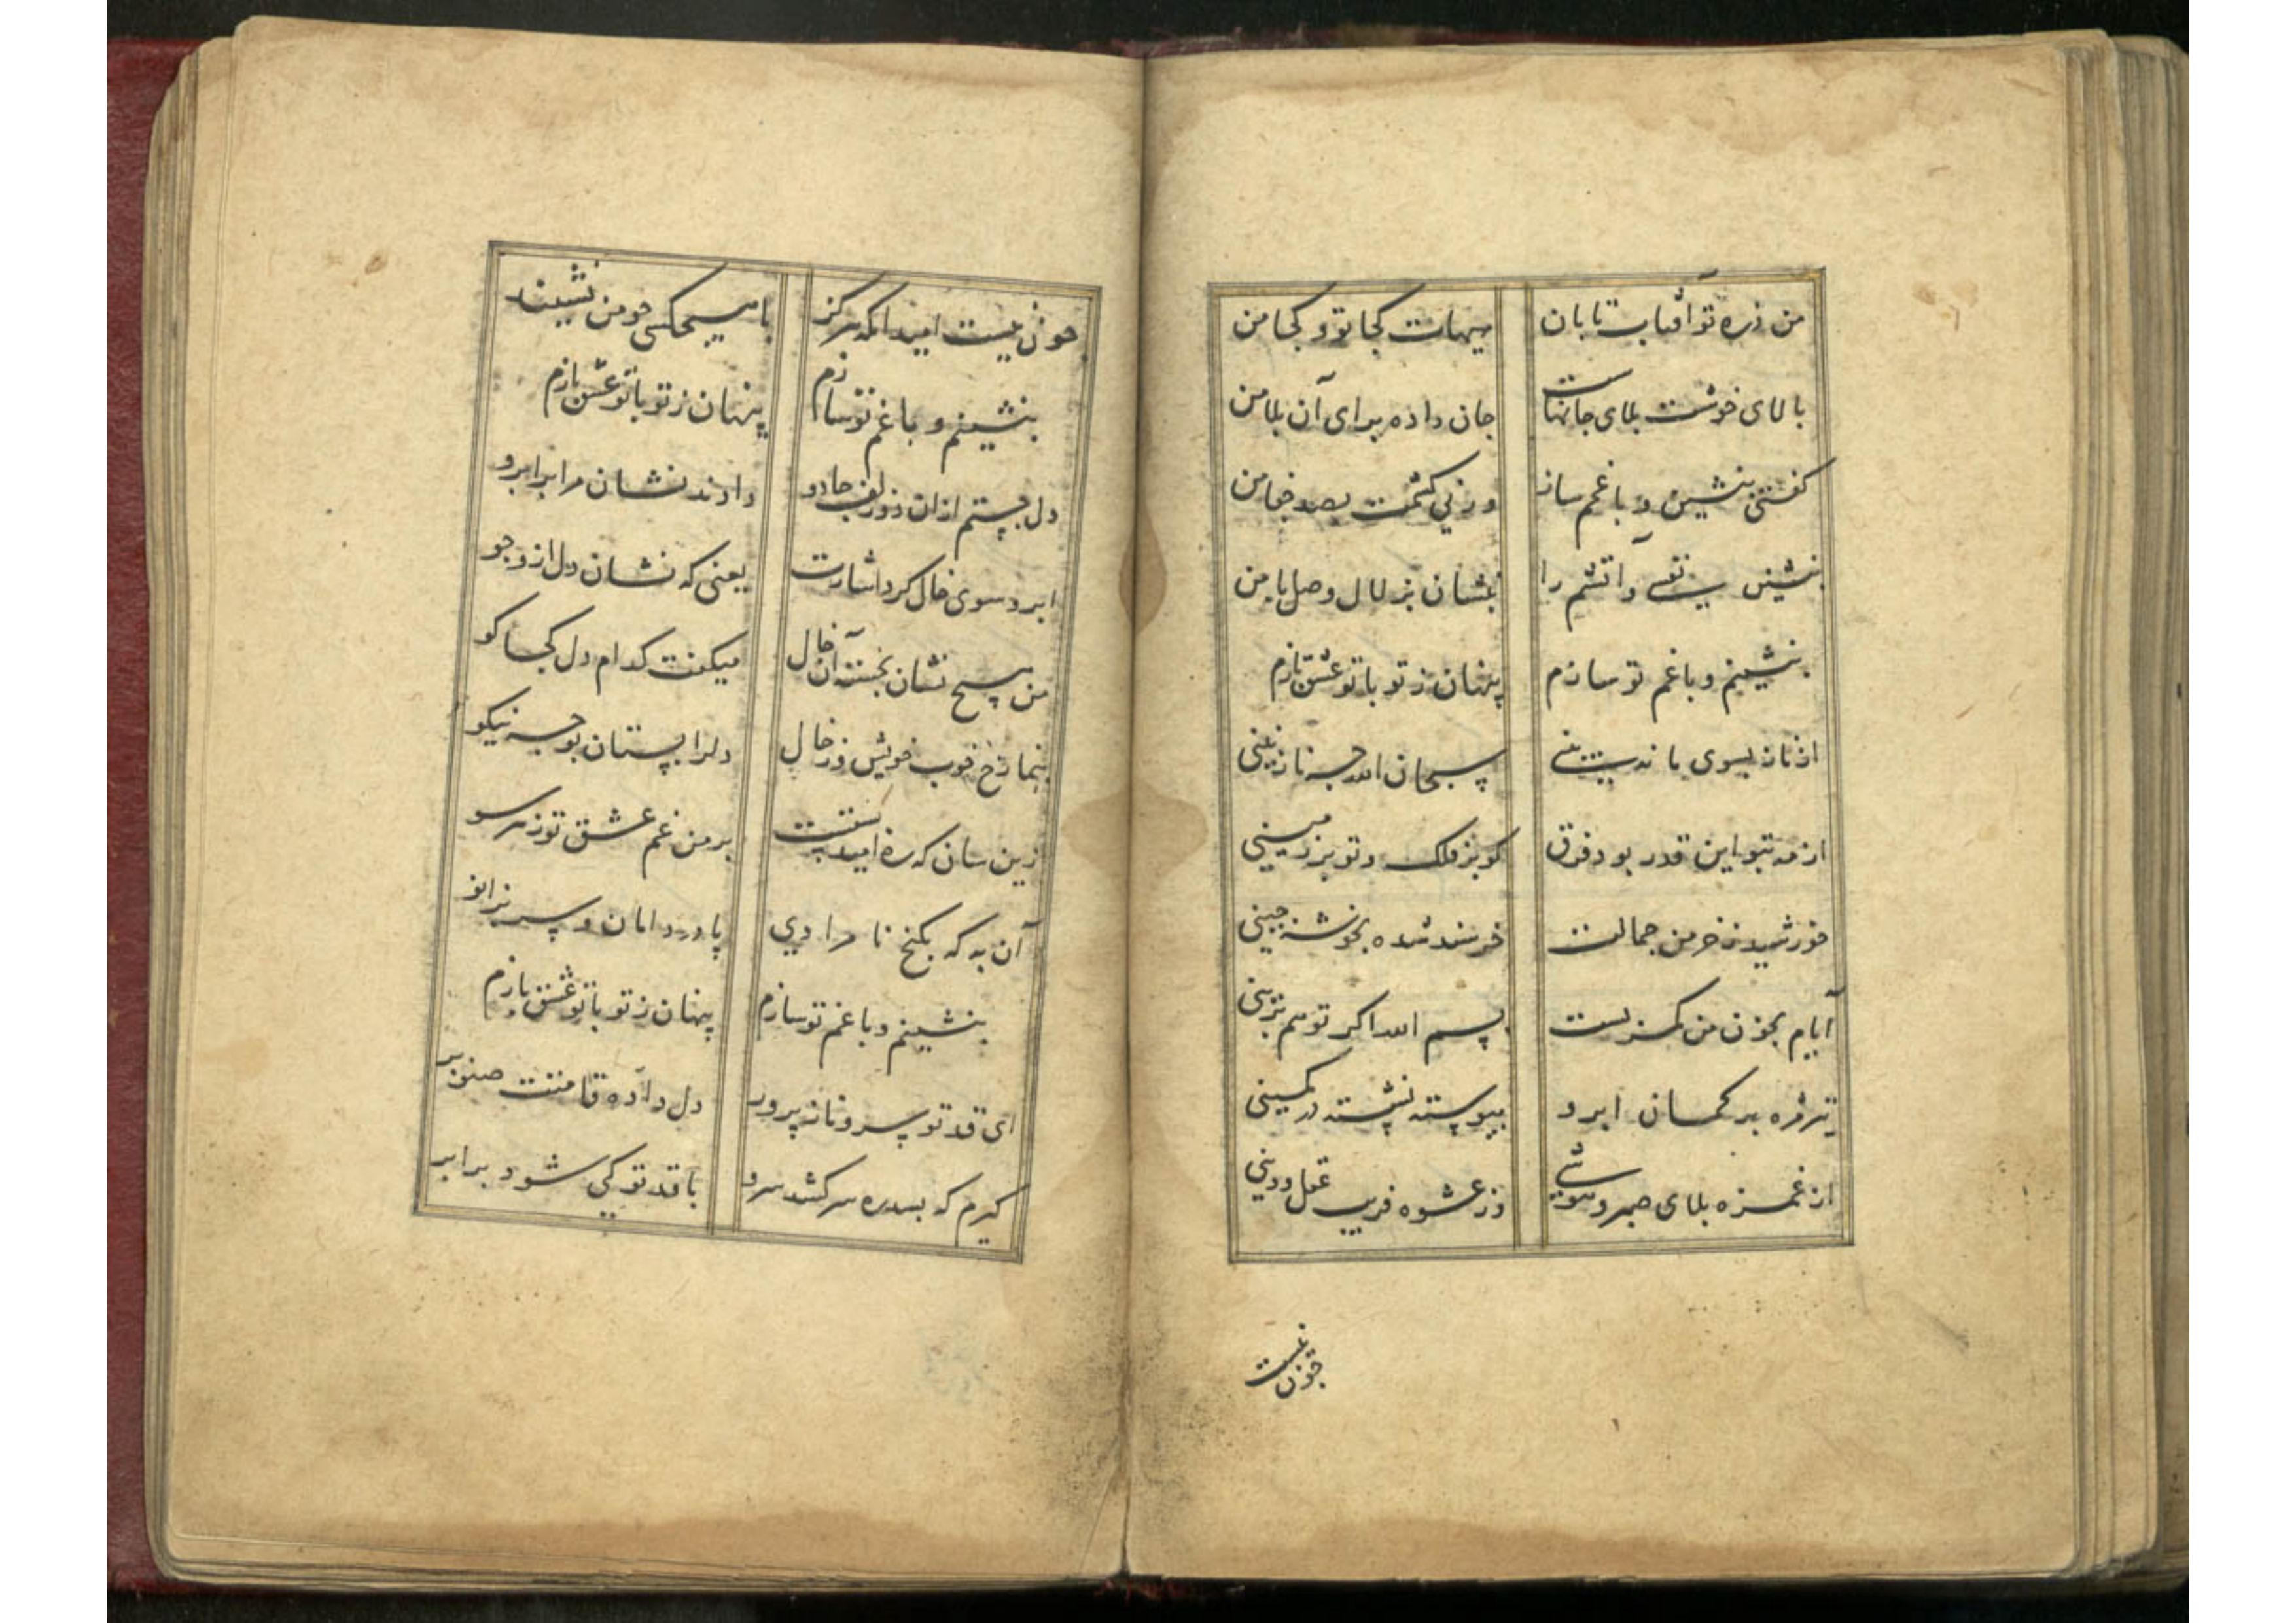 من ذره تو آفتاب تابان هیهات کجا تو و کجا من
بالای خوشت بلای جانهاست جان داده برای آن بلا من
گفتی بنشین و با غمم ساز ورنی کشمت بصد جفا من
بنشین نفسی و آتشم را بنشان بزلال وصل یا من
بنشینم و با غم تو سازم پنهان ز تو با تو عشق بازم
از ناز بسوی ما نبینی سبحان الله چه نازنینی
از مه بتو این قدر بود فرق کو بر فلک و تو بر زمینی
خورشید ز خرمن جمالت خرسند شده بخوشه چینی
ایام بخون من کمر بست بسم الله اگر تو هم برینی
تیر مژه بر کمان ابرو پیوسته نشسته در کمینی
از غمزه بلای صبر و هوشی وز عشوه فریب عقل و دینی
چون نیست
چون نیست امید آنکه هرگز با هیچکسی چو من نشیند
بنشینم و با غم تو سازم پنهان ز تو با تو عشق بازم
دل جستم از ان دو زلف جادو دادند نشان مرا بر ابرو
ابرو سوی خال کرد اشارت یعنی که نشان دل از و جو
من هیچ نشان نجسته آن خال میگفت کدام دل کجا کو
بنما رخ خوب خویش وز خال دلرا بستان بوجه نیکو
زین سان که ره امید بست بر من غم عشق تو ز هر سو
آن به که بکنج نامرادی پا در دامان و سر بزانو
بنشینم و با غم تو سازم پنهان ز تو با تو عشق بازم
ای قد تو سرو ناز پرور دل داده قامتت صنوبر
گیرم که بسدره سر کشد سرو با قد تو کی شود برابر